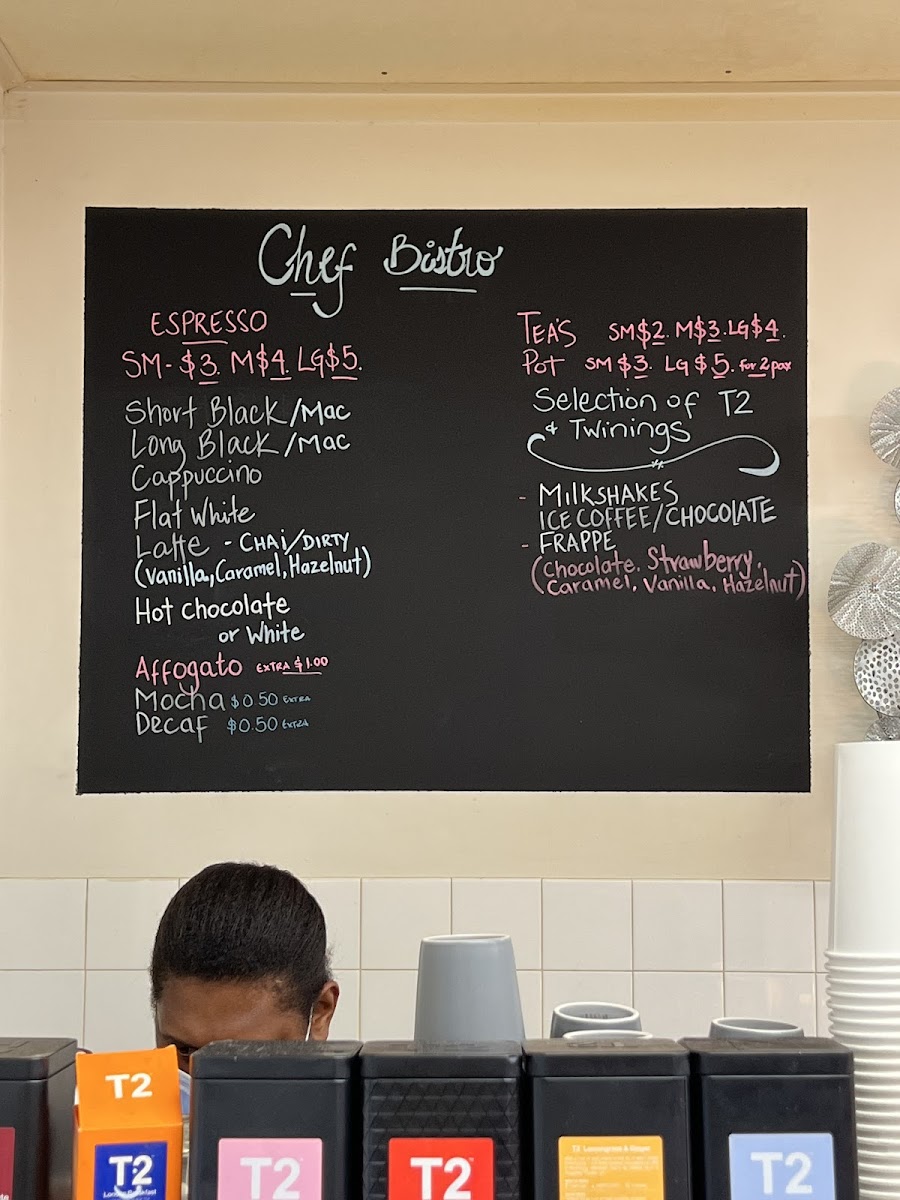 Chef Bistro
ESPRESSO
SM- $3. M$4. LG$5.
Short Black/Mac
Long Black/Mac
Cappuccino
Flat White
Latte - CHAi/DIRTY
(Vanilla, Caramel, Hazelnut)
Hot Chocolate
or White
Affogato EXTRA $1.00
Mocha $0.50 EXTRA
Decaf $0.50 EXTRA
TEA'S SM$2. M$3. LG$4.
Pot SM$3. LG$5. for 2 pax
Selection of T2
& Twinings
- MilKSHAKES
ICE COFFEE/CHOCOLATE
- FRAPPE
(Chocolate. Strawberry.
Caramel. Vanilla. Hazelnut)
T2
T2
London Breakfast
T2
T2
T2 Lemongrass & Ginger
T2